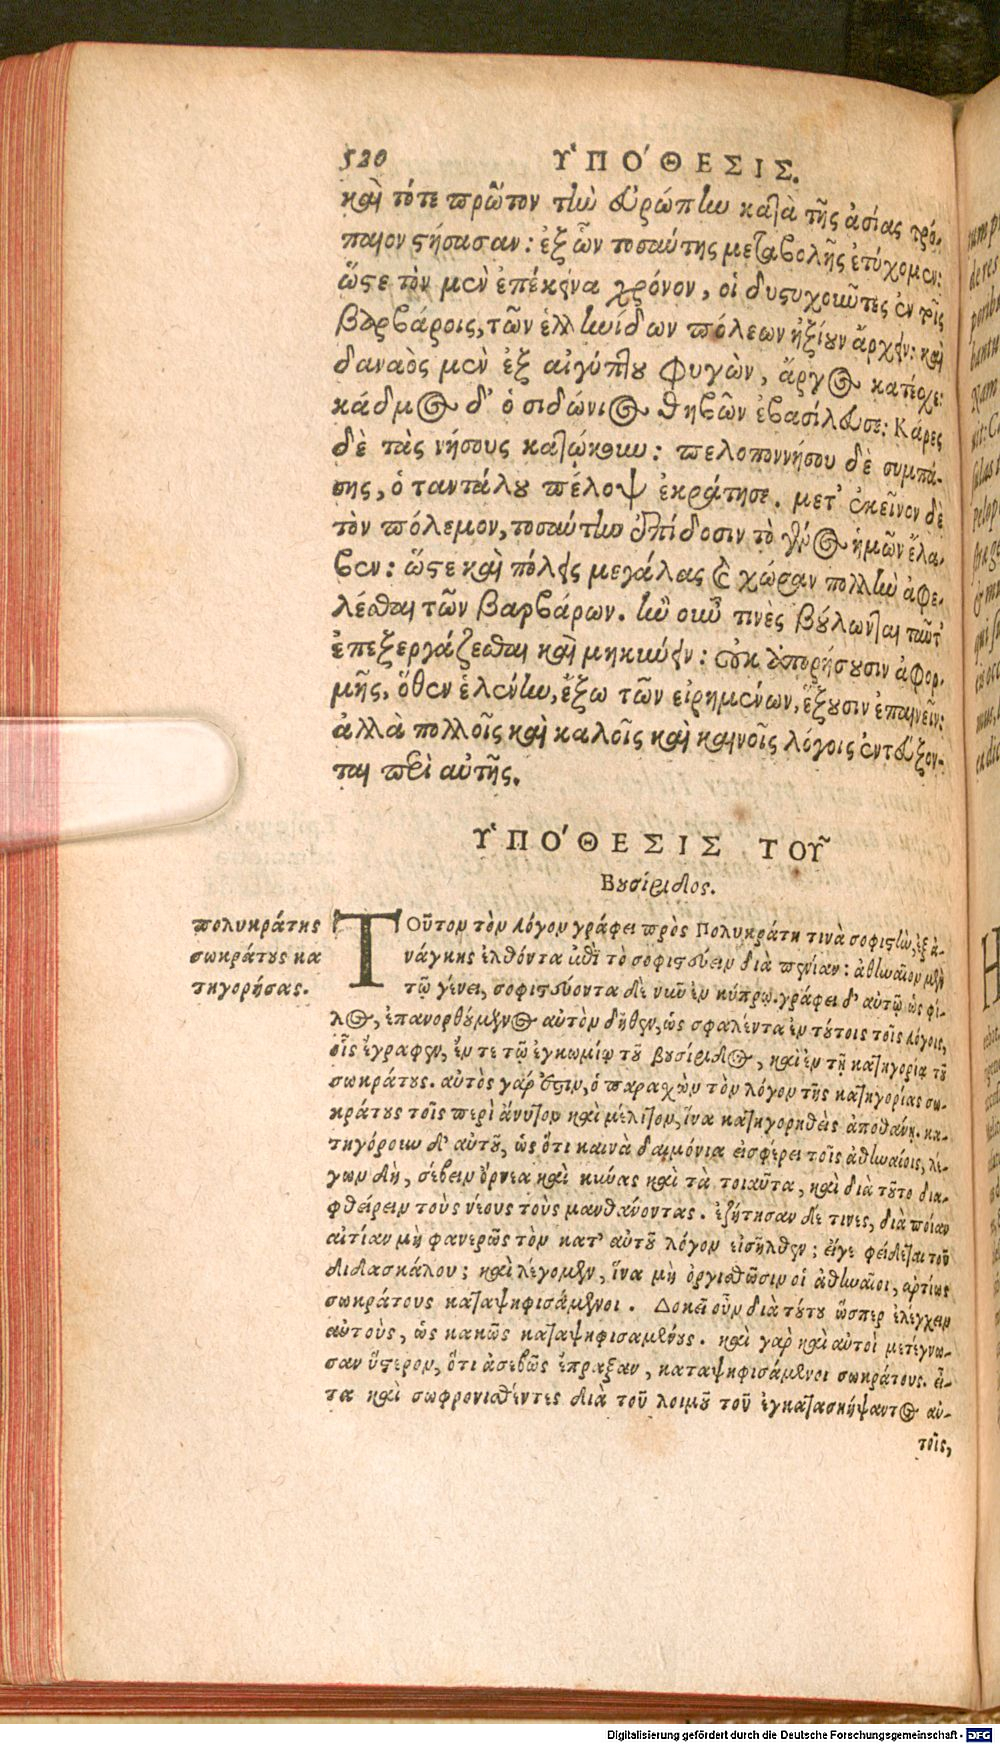 520 ὙΠΌΘΕΣΙΣ.
καὶ τότε πρῶτον τὴν εὐρώπην κατὰ τῆς ἀσίας τρό-
παιον στήσασαν: ἐξ ὧν τοσαύτης μεταβολῆς ἐτύχομεν:
ὥστε τὸν μὲν ἐπέκεινα χρόνον, οἱ δυστυχοῦντες ἐν τοῖς
βαρβάροις, τῶν ἑλληνίδων πόλεων ἠξίουν ἄρχειν: καὶ
δαναὸς μὲν ἐξ αἰγύπτου φυγὼν, ἄργος κατέσχε:
κάδμος δ' ὁ σιδώνιος θηβῶν ἐβασίλευσε: Κάρες
δὲ τὰς νήσους κατῴκουν: πελοποννήσου δὲ συμπά-
σης, ὁ ταντάλου πέλοψ ἐκράτησε. μετ' ἐκεῖνον δὲ
τὸν πόλεμον, τοσαύτην ἐπίδοσιν τὸ γένος ἡμῶν ἔλα-
βεν: ὥστε καὶ πόλεις μεγάλας καὶ χώραν πολλὴν ἀφε-
λέσθαι τῶν βαρβάρων. ἢν οὖν τινὲς βούλωνται ταῦτ'
ἐπεξεργάζεσθαι καὶ μηκύνειν: οὐκ ἀπορήσουσιν ἀφορ-
μῆς, ὅθεν ἑλένην, ἔξω τῶν εἰρημένων, ἕξουσιν ἐπαινεῖν:
ἀλλὰ πολλοῖς καὶ καλοῖς καὶ καινοῖς λόγοις ἐντεύξον-
ται περὶ αὐτῆς.
ὙΠΌΘΕΣΙΣ ΤΟΥ͂
Βουσίριδος.
πολυκράτης
σωκράτους κα
τηγορήσας.
ΤΟῦτον τὸν λόγον γράφει πρὸς Πολυκράτη τινὰ σοφιστὴν, ἐξ ἀ-
νάγκης ἐλθόντα ἐπὶ τὸ σοφιστεύειν διὰ πενίαν: ἀθηναῖον μὲν
τῷ γένει, σοφιστεύοντα δὲ νῦν ἐν κύπρῳ. γράφει δ' αὐτῷ ὡς φί-
λος, ἐπανορθούμενος αὐτὸν δῆθεν, ὡς σφαλέντα ἐν τούτοις τοῖς λόγοις,
οἷς ἔγραφεν, ἔν τε τῷ ἐγκωμίῳ τοῦ βουσίριδος, καὶ ἐν τῇ κατηγορίᾳ τοῦ
σωκράτους. αὐτὸς γάρ ἐστιν, ὁ παρασχὼν τὸν λόγον τῆς κατηγορίας σω-
κράτους τοῖς περὶ ἄνυτον καὶ μέλιτον, ἵνα κατηγορηθεὶς ἀποθάνῃ. κα-
τηγόρουν δ' αὐτοῦ, ὡς ὅτι καινὰ δαιμόνια εἰσφέρει τοῖς ἀθηναίοις, λέ-
γων δὴ, σέβειν ὄρνεα καὶ κύνας καὶ τὰ τοιαῦτα, καὶ διὰ τοῦτο δια-
φθείρειν τοὺς νέους τοὺς μανθάνοντας. ἐζήτησαν δέ τινες, διὰ ποίαν
αἰτίαν μὴ φανερῶς τὸν κατ' αὐτοῦ λόγον εἰσῆλθεν; εἴγε φείδεται τοῦ
διδασκάλου; καὶ λέγομεν, ἵνα μὴ ὀργισθῶσιν οἱ ἀθηναῖοι, ἀρτίως
σωκράτους καταψηφισάμενοι. Δοκεῖ οὖν διὰ τούτου ὥσπερ ἐλέγχειν
αὐτοὺς, ὡς κακῶς καταψηφισαμένους. καὶ γὰρ καὶ αὐτοὶ μετέγνω-
σαν ὕστερον, ὅτι ἀσεβῶς ἔπραξαν, καταψηφισάμενοι σωκράτους. εἶ-
τα καὶ σωφρονισθέντες διὰ τοῦ λοιμοῦ τοῦ ἐγκατασκήψαντος αὐ-
τοῖς,
Digitalisierung gefördert durch die Deutsche Forschungsgemeinschaft - DFG